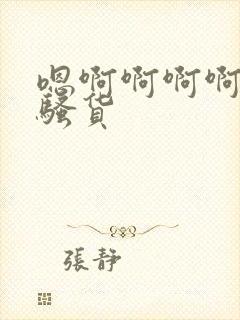 嗯啊啊啊啊
骚货
張靜